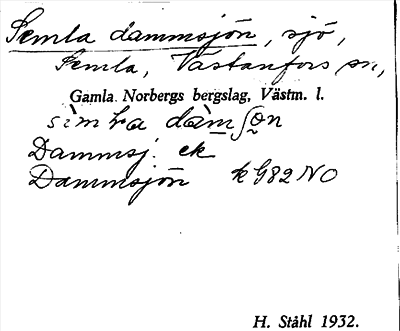 Semla dammsjön, sjö,
Semla, Västanfors sn,
Gamla Norbergs bergslag, Västm. l.
sìmla dàmʃọn
Dammsj. ek
Dammsjön k G82 NO
H. Ståhl 1932.